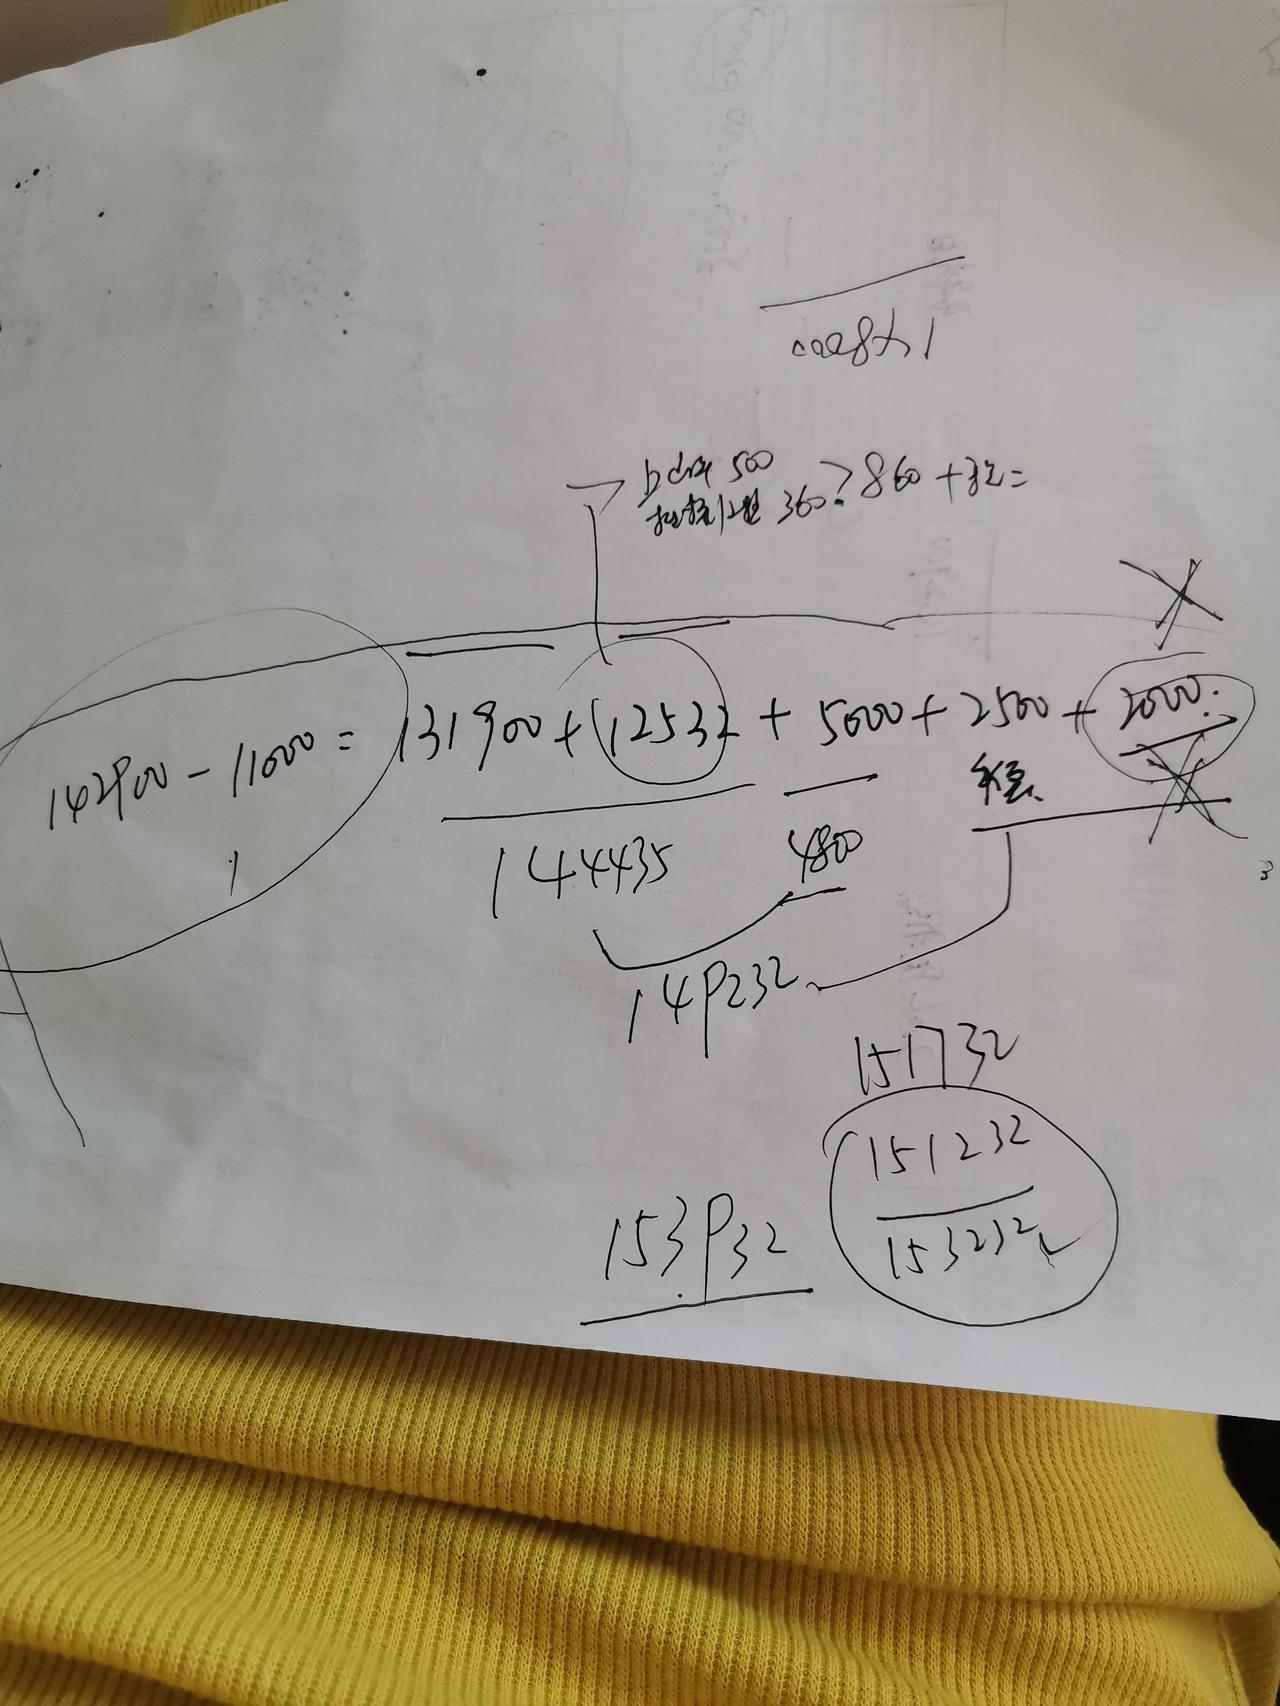 500
360 > 860 + 32 =
142900 - 11000 = 131900 + 12532 + 5000 + 2500 + 2000
144435 4800
149232
151732
151232
153932 153232